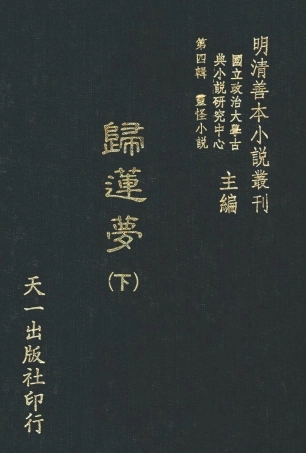 明清善本小說叢刊
國立政治大學古
典小說研究中心
主編
第四輯 靈怪小說
歸蓮夢
(下)
天一出版社印行